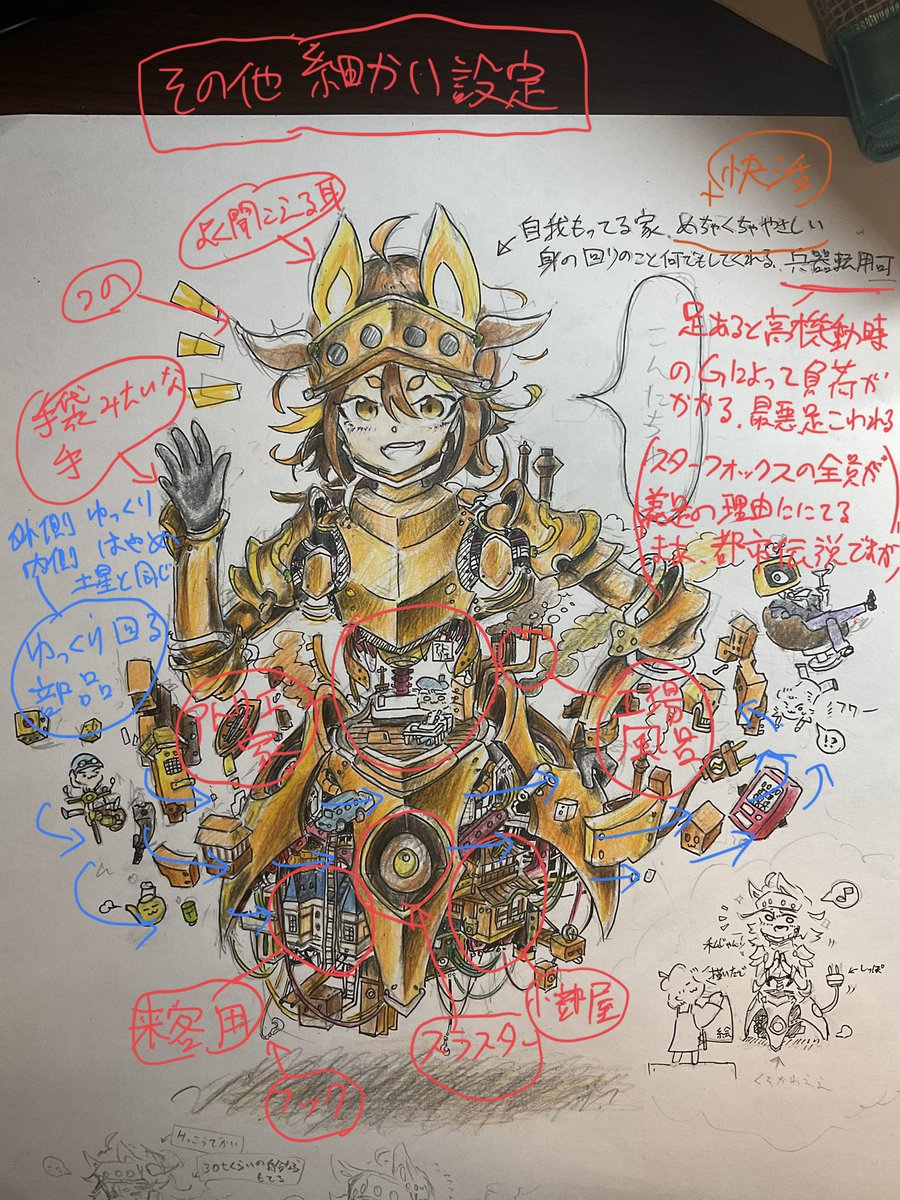 その他 細かい設定
快活
よく聞こえる耳
自我もってる家、めちゃくちゃやさしい
身の回りのこと何でもしてくれる、兵器転用可
つの
足あると高機動時
のGによって負荷が
かかる、最悪足こわれる
手袋みたいな
手
スターフォックスの全員が
義足の理由ににてる
まあ、都市伝説ですが
こんにちは
外側 ゆっくり
内側 はやめ、
土星と同じ
ゆっくり回る
部品
工場
風呂
フワー
!?
来客用
スラスター
部屋
フック
私じゃん!
描いたで
絵
しっぽ
けっこうでかい
30tくらいの
もてる